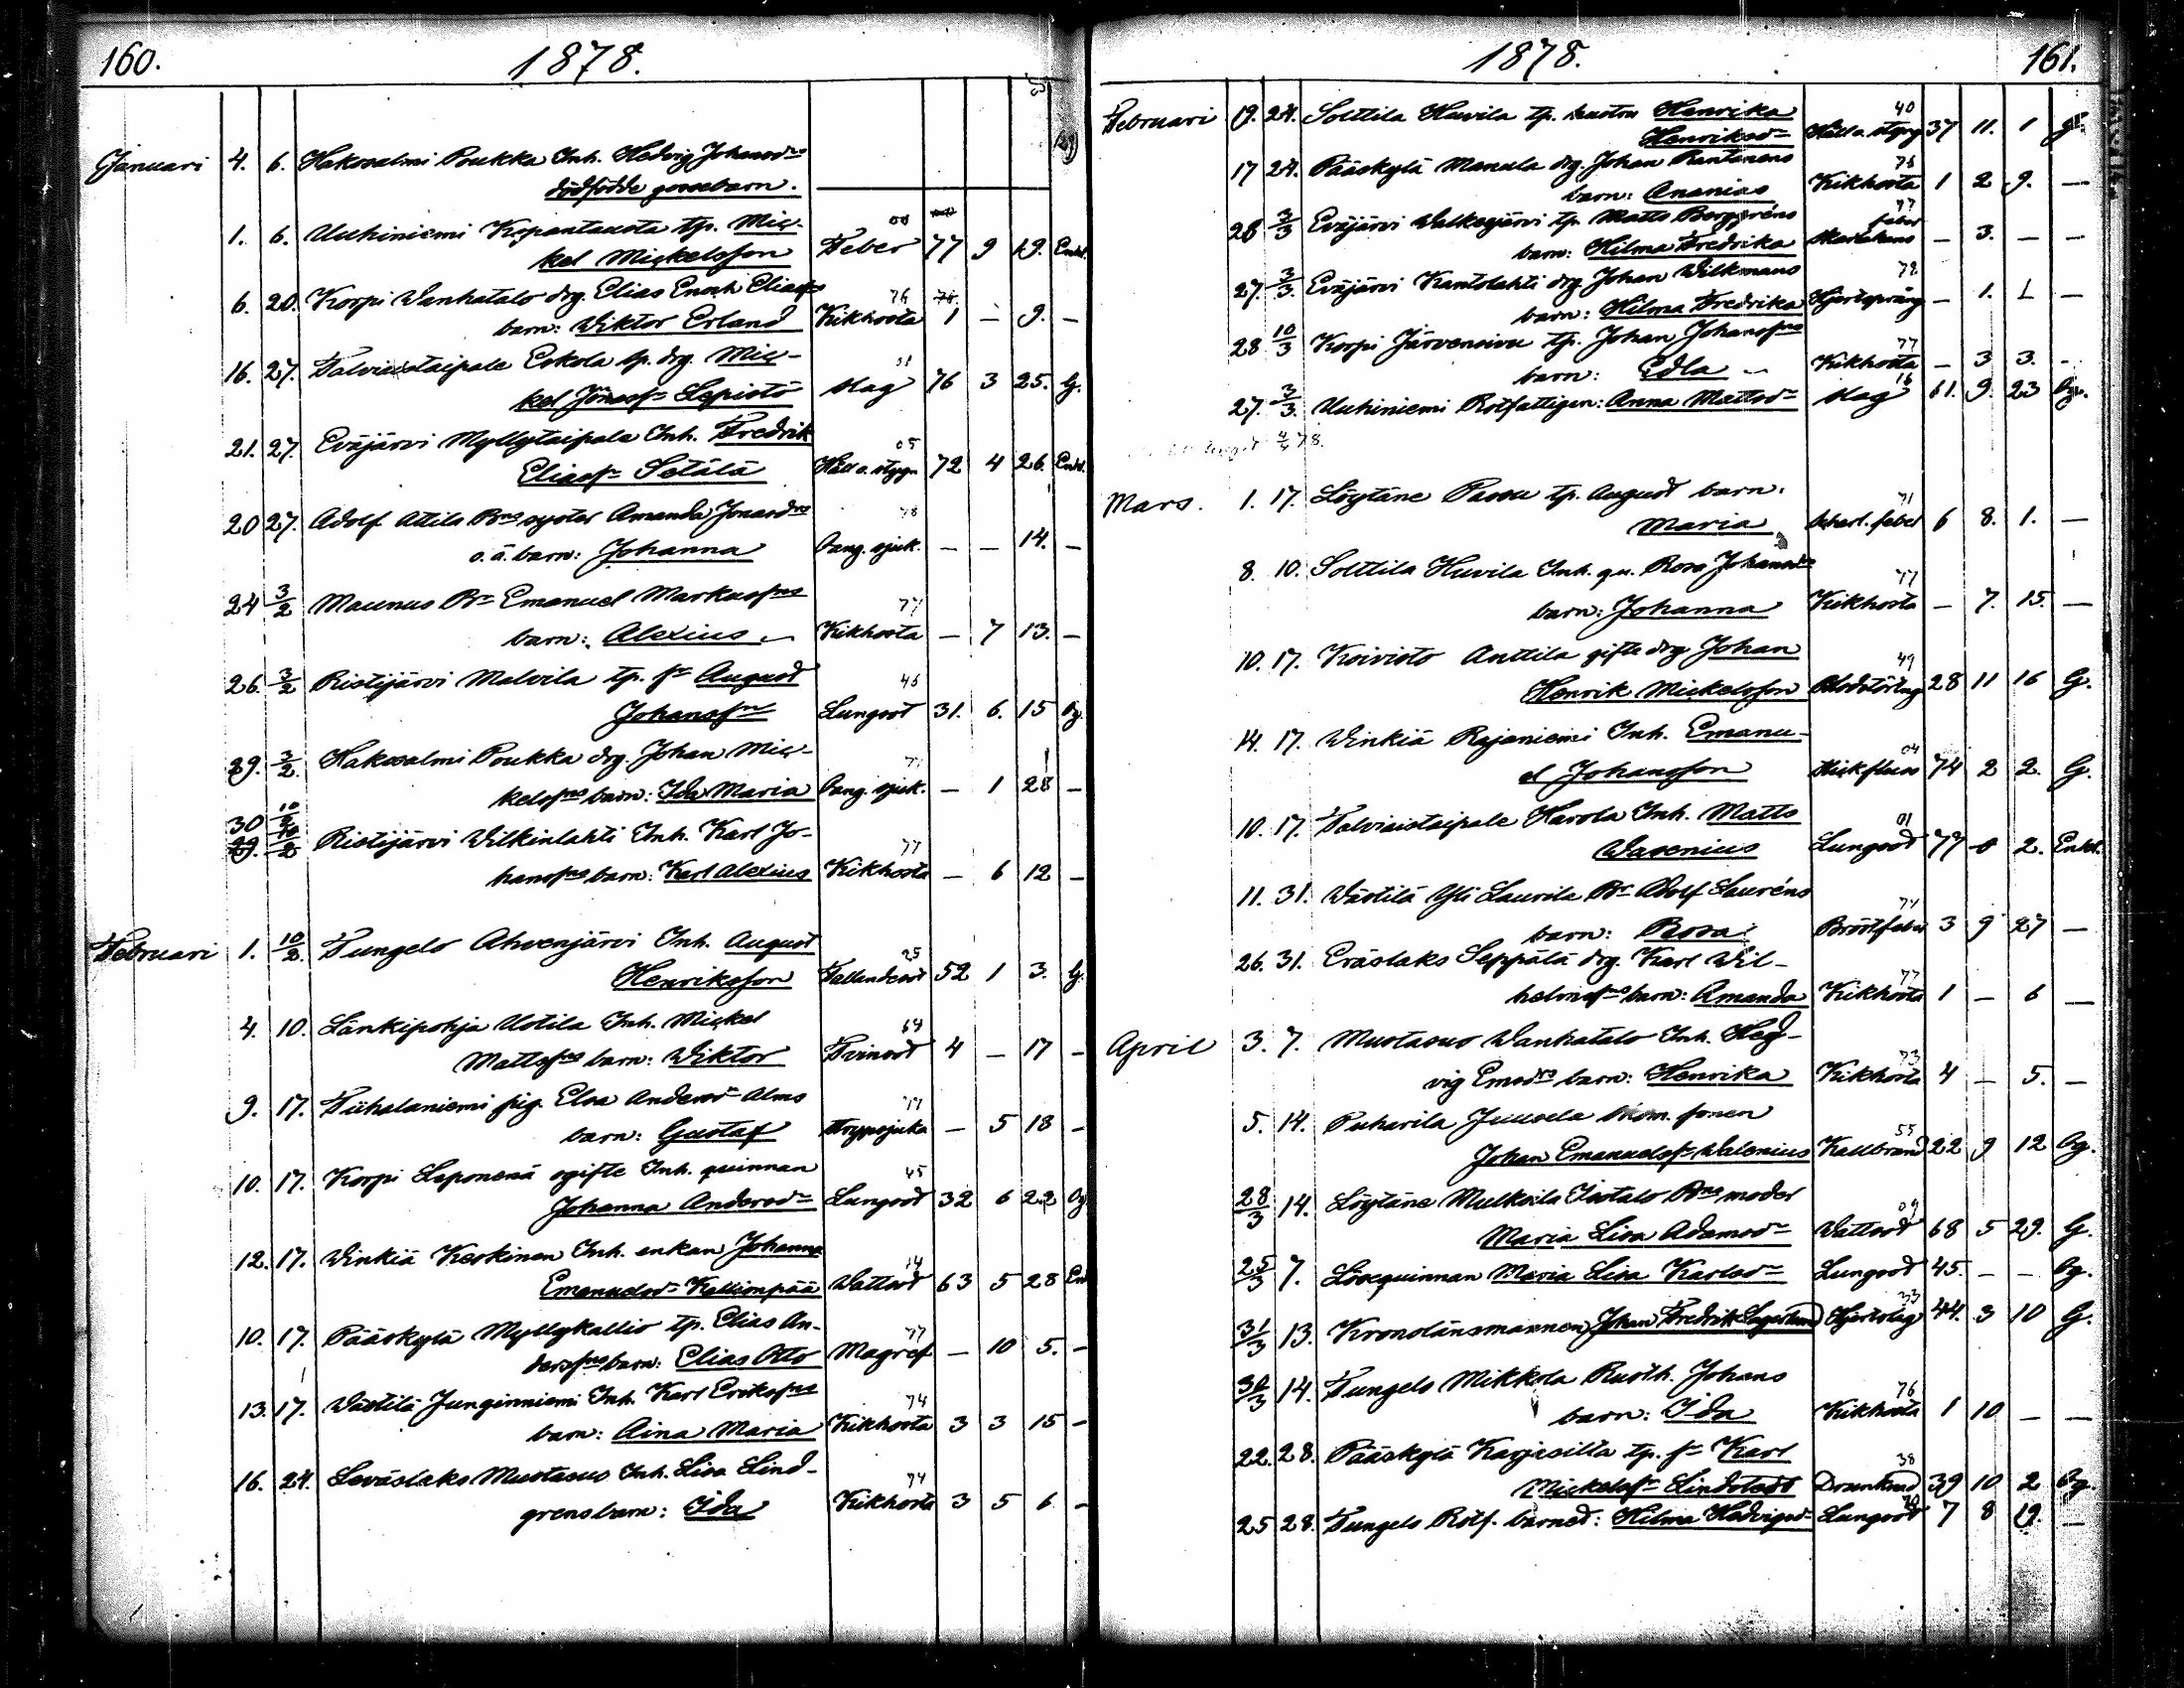 160. 1878.
Januari 4. 6. Hakosalmi Poukka Inh. Hedvig Johansdrs
dödfödde gossebarn.
1. 6. Uuhiniemi Kopantausta tp. Mic-
kel Mickelsson Feber 00 77 9 19. Enkl.
6. 20. Korpi Wanhatalo drg. Elias Enoch Eliass
barn: Wiktor Erland Kikhosta 76 1 – 9. –
16. 27. Talviaistaipale Eskola tp. drg. Mic-
kel Jonass Lepistö Slag 76 3 25. G.
21. 27. Eväjärvi Myllytaipale Inh. Fredrik
Eliass Setälä Håll o. stygn 05 72 4 26. Enkl.
20 27. Adolf Attila Bns syster Amanda Jonasdrs
o. ä. barn: Johanna Bang. sjuk. 78 – – 14. –
24 3/2 Maunus Bn Emanuel Markussns
barn: Alexius Kikhosta 77 – 7 13. –
26. 3/2 Ristijärvi Malvila tp. sn August
Johanssn Lungsot 46 31. 6. 15 Og.
29. 3/2. Hakosalmi Poukka drg. Johan Mic-
kelssns barn: Ida Maria Bang. sjuk. 77 – 1 28 –
30 10/2
29. 10/2 Ristijärvi Wilkinlahti Inh. Karl Jo-
hanssns barn: Karl Alexius Kikhosta 77 – 6 12 –
Februari 1. 10/2. Fungelo Ahvenjärvi Inh. August
Henriksson Fallandesot 25 52 1 3. G.
4. 10. Länkipohja Uotila Inh. Mickel
Mattssns barn: Wiktor Tvinsot 4 – 17 –
9. 17. Tiihalaniemi pig. Elsa Andersdr Alms
barn: Gustaf Strypsjuka 77 – 5 18 –
10. 17. Korpi Leponenä ogifte Inh. quinnan
Johanna Andersdr Lungsot 45 32 6 22 Og
12. 17. Winkiä Keskinen Inh. enkan Johanna
Emanuelsdr Kallionpää Wattsot 14 63 5 28 Enk
10. 17. Pääskylä Myllykallio tp. Elias An-
derssns barn: Elias Otto Magref 77 – 10 5. –
13. 17. Västilä Junginniemi Inh. Karl Erikssns
barn: Aina Maria Kikhosta 74 3 3 15 –
16. 24. Leväslaks Mustasuo Inh. Lisa Lind-
grens barn: Ida Kikhosta 74 3 5 6 –
1878. 161.
Februari 19. 24. Solttila Huvila tp. hustru Henrika
Henriksdr Håll o. styng 40 37 11. 1 G.
17 24. Pääskylä Mannla drg. Johan Rantanens
barn: Ananias Kikhosta 76 1 2 9. –
28 3/3 Eväjärvi Walkeajärvi tp. Matts Berggréns
barn: Hilma Fredrika Skarlakans feber 77 – 3. – –
27. 3/3. Eväjärvi Kantolahti drg. Johan Wilkmans
barn: Hilma Fredrika Hjertspräng 78 – 1. 1 –
28 10/3 Korpi Järvensivu tp. Johan Johanssns
barn: Edla Kikhosta 77 – 3 3. –
27. 3/3. Uuhiniemi Rotfattigen: Anna Mattsdr Slag 16 61. 9. 23 Og.
Mars. 1. 17. Löytäne Passu tp. August barn:
Maria Scharl. feber 71 6 8. 1. –
8. 10. Solttila Huvila Inh. qu. Rosa Johansdrs
barn: Johanna Kikhosta 77 – 7. 15. –
10. 17. Koivisto Anttila gifte drg Johan
Henrik Mickelsson Blodstörtng 49 28 11 16 G.
14. 17. Winkiä Rajaniemi Inh. Emanu-
el Johansson Stickfluss 04 74 2 2. G.
10. 17. Talviaistaipale Harola Inh. Matts
Wasenius Lungsot 01 77 0 2. Enkl.
11. 31. Västilä Yli Laurila Bn Adolf Lauréns
barn: Rosa Bröstfeber 74 3 9 27 –
26. 31. Eräslaks Seppälä drg. Karl Wil-
helmssns barn: Amanda Kikhosta 77 1 – 6 –
April 3. 7. Mustasuo Wanhatalo Inh. Hed-
vig Emsdrs barn: Henrika Kikhosta 73 4 – 5. –
5. 14. Puharila Juusela sonen
Johan Emanuelss Walenius Kallbrand 55 22 9 12 Og.
28/3 14. Löytäne Mulkoila Isotalo Bns moder
Maria Lisa Adamsdr Wattsot 09 68 5 29. G.
25/3 7. Lösequinnan Maria Lisa Karlsdr Lungsot 45. – – Og.
31/3 13. Kronolänsmannen Johan Fredrik Lagerlund Hjertslag 33 44. 3 10 G.
30/3 14. Fungelo Mikkola Rusth. Johans
barn: Ida Kikhosta 76 1 10 – –
22. 28. Pääskylä Karjusilta tp. sn Karl
Mickelssn Lindstedt Drunknad 38 39 10 2 Og.
25 28. Fungelo Rotf. barnet: Hilma Hedvigsdr Lungsot 70 7 8 19. –